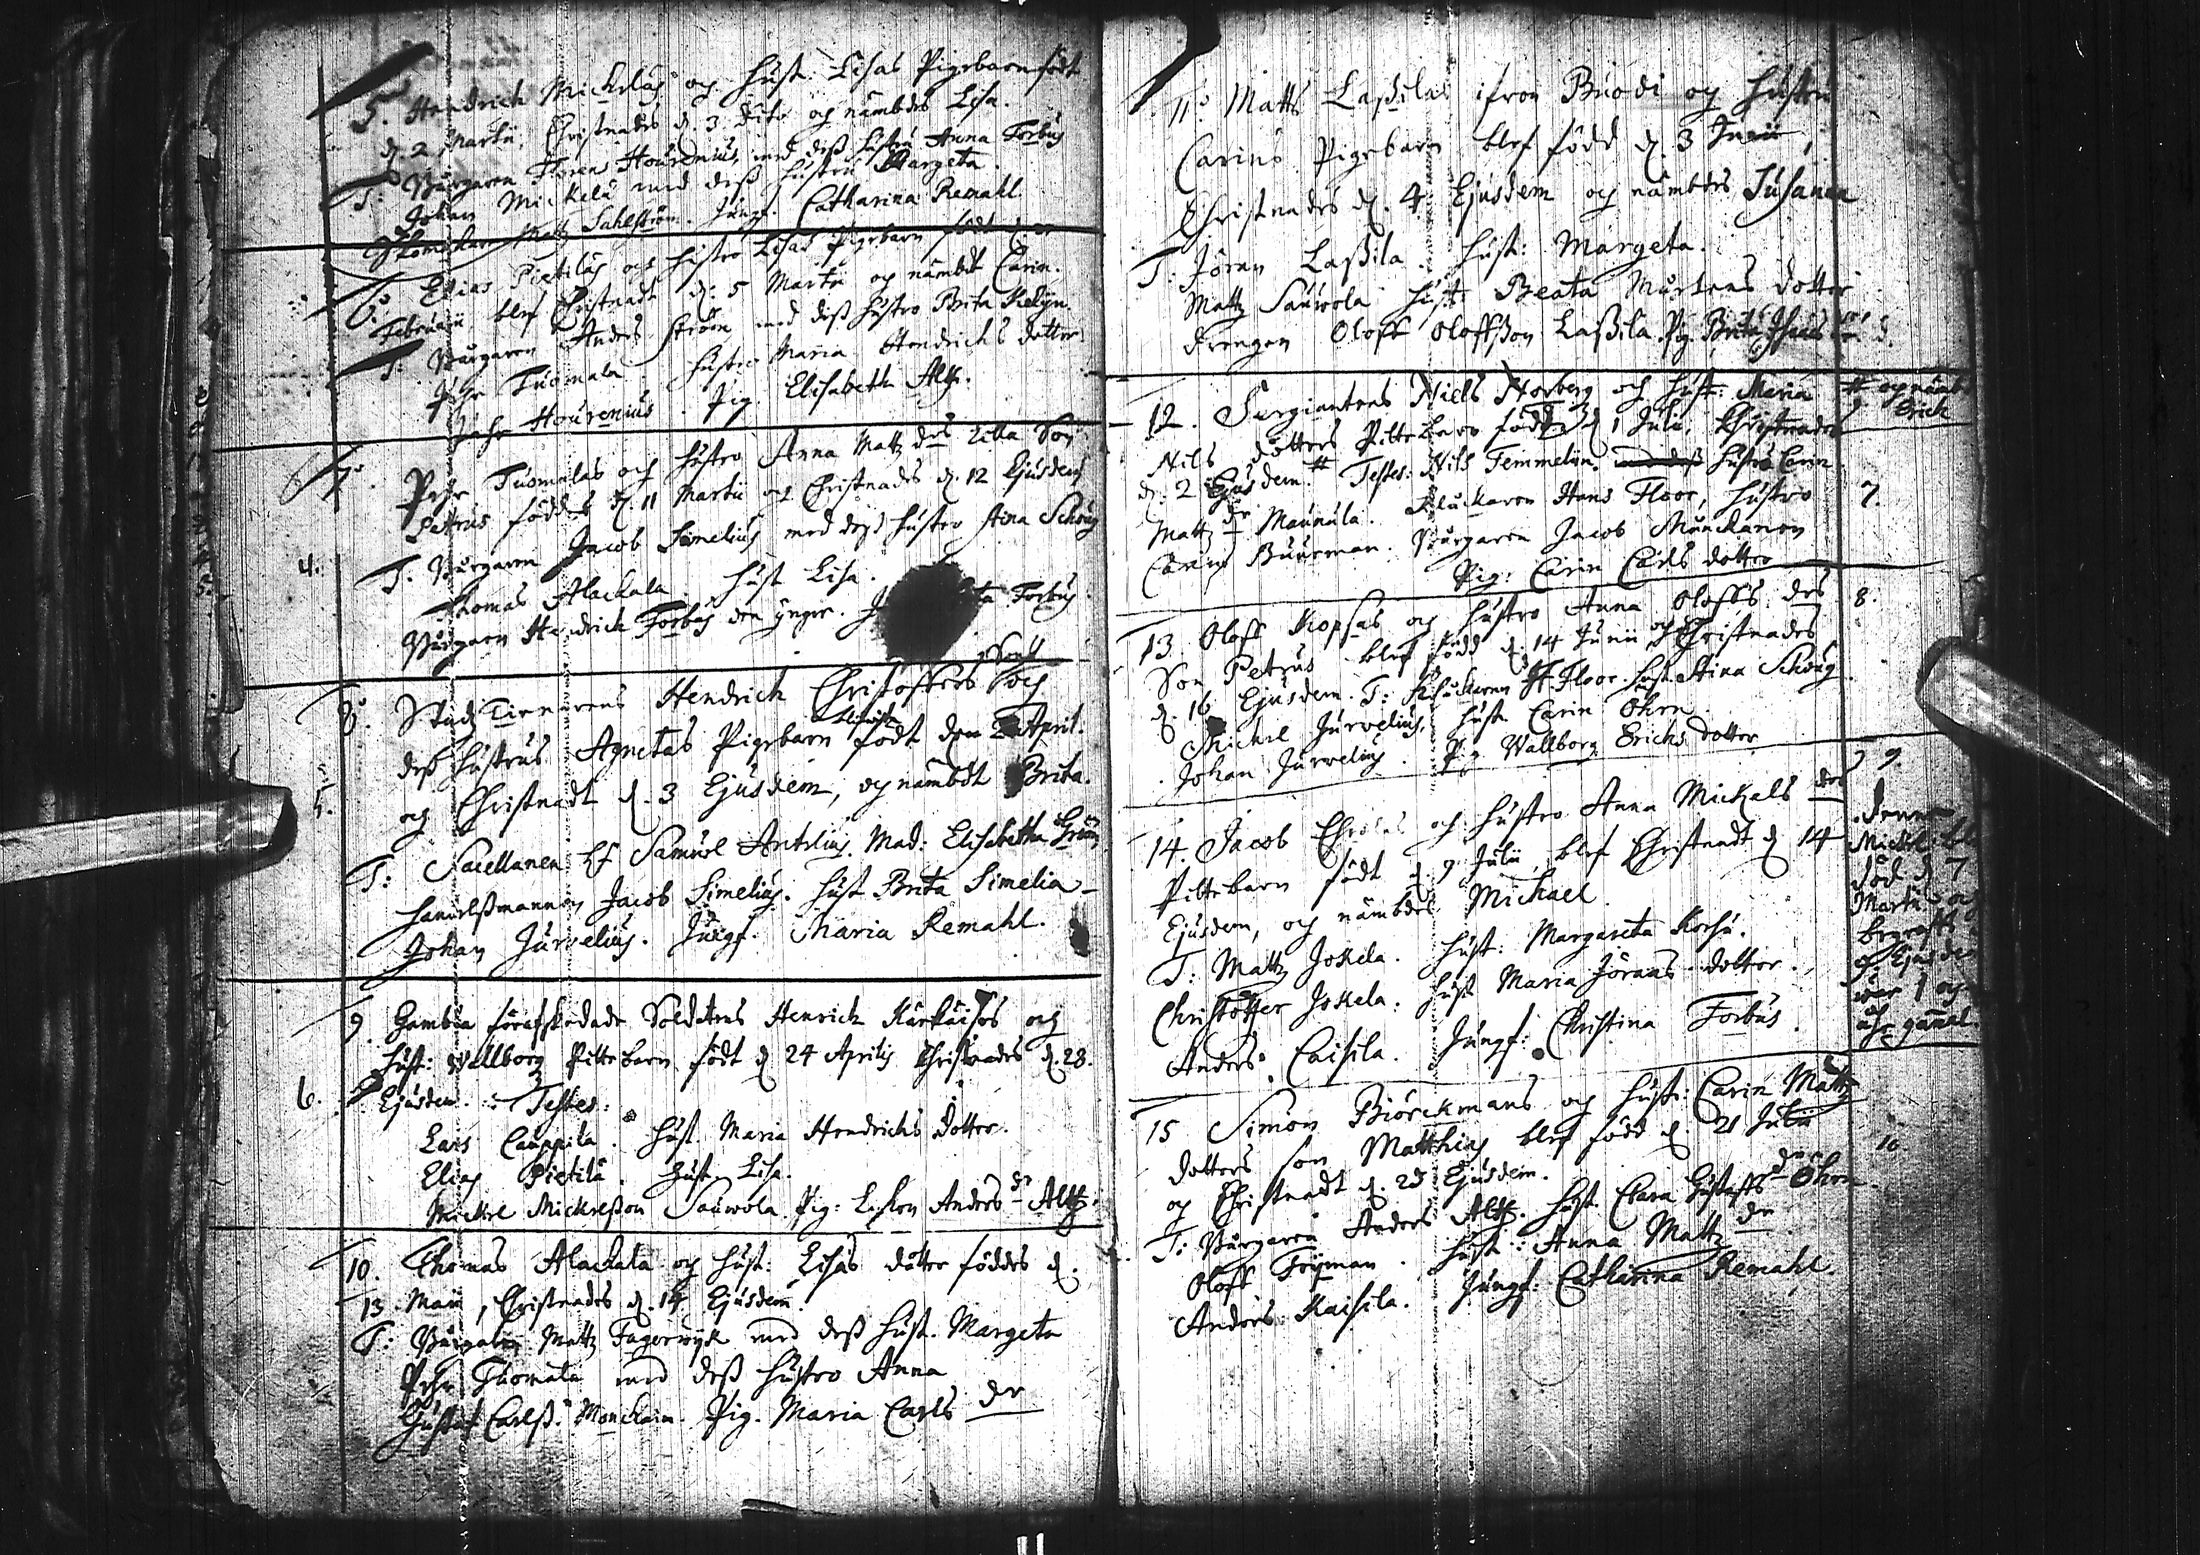 5. Hendrich Mickelas och hust: Lisas Pigebarn födt
d. 2 Martii, Christnades d. 3 dito og nämbdes Lisa.
T: Burgaren Floren Hourenius med deß hustru Anna Forbus
Johan Mickela med deß hustru Margeta.
Mattz Sahlström. Jungf. Catharina Remahl
6. Elias Pietilas och hustro Lisas Pigebarn födt
Februarii blef Christnadt d. 5 Martii og nämbdt Carin.
T: Burgaren Anders Ström med deß hustro Brita Kelijn.
Pehr Tuomala hustro Maria Hendrichs dotter
Pehr Hourenius. Pig. Elisabeth Alth.
7. Pehr Tuomalas och hustro Anna Mattz drs Lilla Son
Pettrus föddes d. 11 Martii og Christnades d. 12 Ejusdem
4.
T. Burgaren Jacob Simelius med deß hustro Stina Schoug
Thomas Alackala. hust Lisa.
Burgaren Hendrich Forbus den yngre. Forbus.
8. Stadz Tienarens Hendrich Christoffers Son och
deß hustrus Agnetas Pigebarn födt den April.
5.
og Christnadt d. 3 Ejusdem, og nämbdt Brita.
T: Sacellanen H. Samuel Antelius. Mad: Elisabetha
handelßmannen Jacob Simelius. hust Brita Simelia
Johan Jurvelius. Jungf. Maria Remahl.
9. Gambla förafskedade Soldatens Henrich Kärkäisos och
hust: Wallborg Piltebarn födt d. 24 Aprilis Christnades d. 28.
6.
Ejusdem. Testes:
Lars Cauppila. hust Maria Hendrichs Dotter.
Elias Pietilä. hust Lisa.
Mickel Mickelßon Sauwola. Pig: Anders dr Alth.
10. Thomas Alackala og hust: Lisas dotter föddes d.
13 Maii, Christnades d. 14 Ejusdem.
T: Burgaren Mattz Fagerwijk med deß hust. Margeta
Pehr Tuomala med deß hustro Anna
Gustaf Carlß. Monckain. Pig. Maria Carls dr
11. Matts Laßilas ifron Buodi og hustru
Carins Pigebarn blef född d. 3 Junii,
Christnades d. 4 Ejusdem og nämbdes Susanna
T: Jöran Laßila. hust: Margeta.
Mattz Sauwola hust: Beata Murtens dotter
drengen Oloff Oloffßon Laßila. Pig. Brita
12. Sergiantens Niels Norberg och hust: Maria
# og nämbd
Erich
Nils dotters Piltebarn född d. 1 Julii, Christnades
d. 2 Ejusdem. # Testes: Nils Temmelin. hustro Carin
7.
Mattz dr Maunula. Kluckaren Hans Floor, hustro
Carin Buurman. Burgaren Jacob Munckanen
Pig: Carin Carls dotter
13. Oloff Kopsas og hustro Anna Oloffs drs
8.
Son Petrus blef född d. 14 Junii och Christnades
d. 16 Ejusdem. T: Kluckaren H. Floor. hust Stina Schoug.
Mickel Jurvelius, hust Carin Öhrn.
Johan Jurvelius. Pig Wallborg Erichs dotter.
14. Jacob och hustro Anna Mickals drs
9
Piltebarn födt d. 9 Julii, blef Christnadt d. 14
Ejusdem, og nämbdes Michael.
T: Mattz Jokela. hust: Margareta
Christoffer Jokela. hust Maria Jörans dotter.
Anders Caisila. Jungf: Christina Forbus.
denna
Mickel blef
död d. 7
Martii og
begrafts
9 Ejusdem
war 1 og
åhr gamal.
15 Simon Biörckmans og hust: Carin Mattz
10.
dotters son Matthias blef född d. 21 Julii
og Christnadt d. 25 Ejusdem.
T: Burgaren Anders Alth. hust Clara Gustaffs dr Öhrn.
Oloff Frijman. hust: Anna Mattz dr
Anders Kaisila. Jungf: Catharina Remahl.